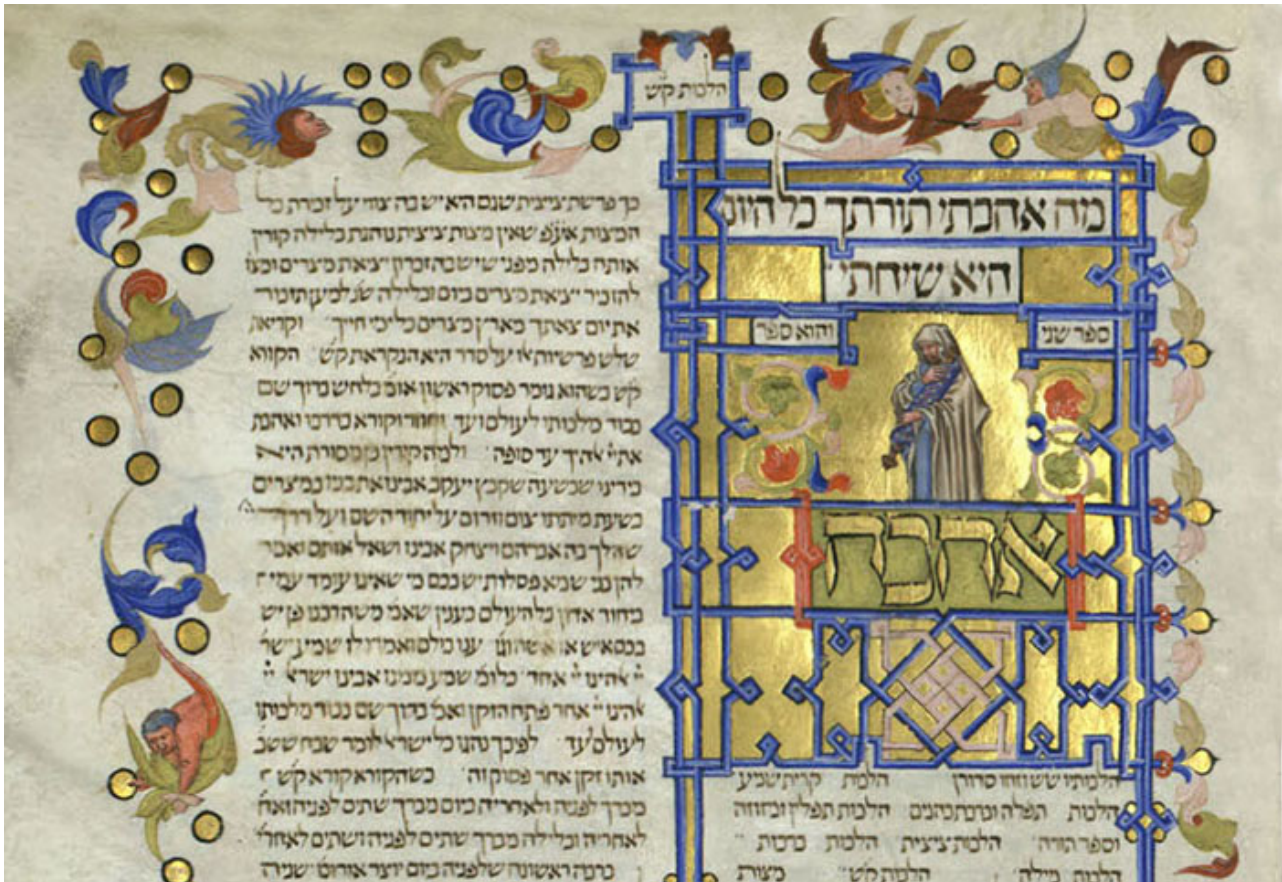 הלכות קש
מה אהבתי תורתך כל היום
היא שיחתי
ספר שני והוא ספר
אהבה
הלכותיו שש וזהו סדורן הלכות קרית שמע
הלכות תפלה וברכת כהנים הלכות תפלין ומזוזה
וספר תורה הלכות ציצית הלכות ברכות
הלכות מילה הלכות קש מצות
כך פרשת ציצית שגם היא יש בה צווי על זכירת כל
המצות אעפ שאין מצות ציצית נוהגת בלילה קורין
אותה בלילה מפני שיש בה זכרון יציאת מצרים ומצו
להזכיר יציאת מצרים ביום ובלילה שנ למען תזכור
את יום צאתך מארץ מצרים כל ימי חייך וקריאת
שלש פרשיות או על סדר היא הנקראת קש הקורא
קש כשהוא גומר פסוק ראשון אומ בלחש ברוך שם
כבוד מלכותו לעולם ועד וחוזר וקורא כדרכו ואהבת
את יי אהיך עד סופה ולמה קורין כן מסורת היא
בידינו שבשעה שקבץ יעקב אבינו את בניו במצרים
בשעת מיתתו צום וזרזם על יחוד השם ועל דרך
שהלך בה אברהם ויצחק אבינו ושאל אותם ואמר
להן בני שמא פסלות יש בכם מי שאינו עומד עמי
ביחוד אדון כל העולם כענין שאמ משה רבנו פן יש
בכם איש או אשה וגו ענו כולם ואמרו לו שמע ישר
יי אהינו יי אחד כלומ שמע ממנו אבינו ישרא יי
אהינו יי אחד פתח הזקן ואמ ברוך שם כבוד מלכותו
לעולם ועד לפיכך נהגו כל ישרא לומר שבח ששבח
אותו זקן אחר פסוק זה כשהקורא קורא קש
מברך לפניה ולאחריה ביום מברך שתים לפניה ואחת
לאחריה ובלילה מברך שתים לפניה ושתים לאחריה
ברכה ראשונה שלפניה ביום יוצר אור שנייה